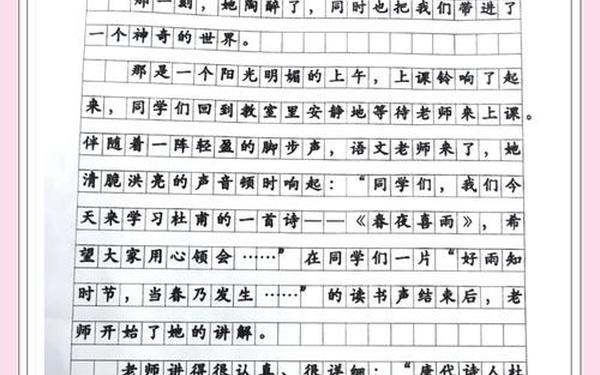 那一刻，她陶醉了，同时也把我们带进了
一个神奇的世界。
那是一个阳光明媚的上午，上课铃响了起
来，同学们回到教室里安静地等待老师来上课。
伴随着一阵轻盈的脚步声，语文老师来了，她
清脆洪亮的声音顿时响起：“同学们，我们今
天来学习杜甫的一首诗——《春夜喜雨》，希
望大家用心领会……”在同学们一片“好雨知
时节，当春乃发生……”的读书声结束后，老
师开始了她的讲解。
老师讲得很认真、很详细：“唐代诗人杜